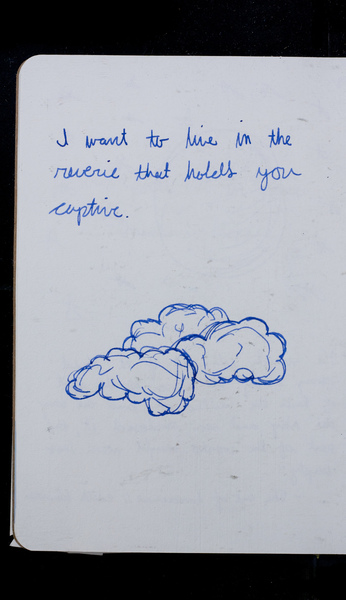 I want to live in the
reverie that holds you
captive.